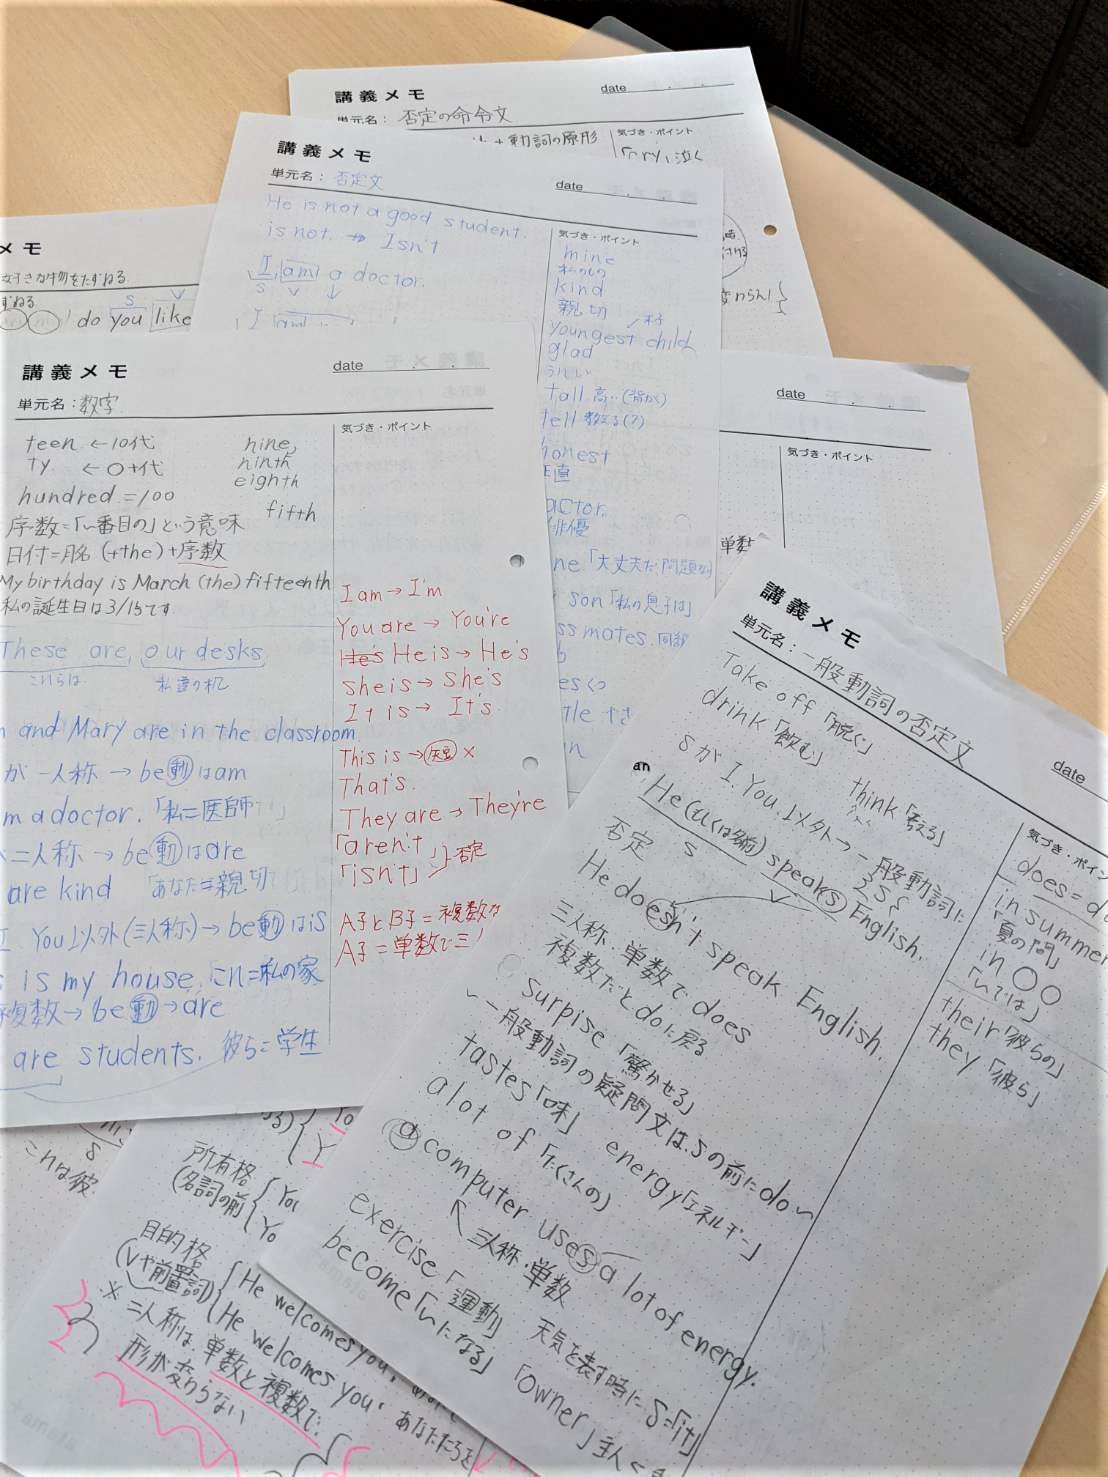 講義メモ
date
単元名：否定の命令文
＋動詞の原形
気づき・ポイント
泣く
講義メモ
単元名：否定文
date
He is not a good student.
is not → Isn't
I am a doctor.
S V
気づき・ポイント
mine
私のもの
kind
親切
youngest child
glad
うれしい
tall 高い(背が)
tell 教える(?)
honest
正直
actor
俳優
「大丈夫だ 問題ない
son「私の息子は」
do you like
S V
講義メモ
date
単元名：数字
気づき・ポイント
teen ←10代
ty ←○十代
hundred = 100
nine,
ninth
eighth
fifth
序数=「〜番目の」という意味
日付=月名(+the)+序数
My birthday is March (the) fifteenth
私の誕生日は3/15です
These are our desks
これらは 私達の机
and Mary are in the classroom.
が一人称 → be動はam
m a doctor.「私=医師」
二人称 → be動はare
are kind「あなた=親切
You以外(三人称)→be動はis
is my house, これ=私の家
複数→be動→are
are students. 彼ら=学生
I am → I'm
You are → You're
He's He is → He's
she is → she's
It is → It's
This is → ×
That's.
They are → They're
「aren't」
「isn't」 否定
A子とB子=複数な
A子=単数で三
date
気づき・ポイント
単数
講義メモ
単元名：一般動詞の否定文
date
気づき・ポイン
Take off「脱ぐ」
drink「飲む」
think「考える」
SがI. You.以外→一般動詞に
S
an
He(もしくは名前) speaks English.
S V
否定
He doesn't speak English.
三人称・単数で does
複数だとdoに戻る
Surpise「驚かせる」
一般動詞の疑問文は、Sの前にdo〜
tastes「味」 energy「エネルギー」
a lot of「たくさんの」
a computer uses a lot of energy.
三人称・単数
exercise「運動」
become「〜になる」
天気を表す時に S=「it」
「owner」主人
in summer
「夏の間」
in ○○
「〜では」
their「彼らの」
they「彼ら」
所有格
(名詞の前
目的格
(Vや前置詞)
He welcomes you,
He welcomes you.
あなたたちを
※二人称は、単数と複数で、
形が変わらない
これは彼